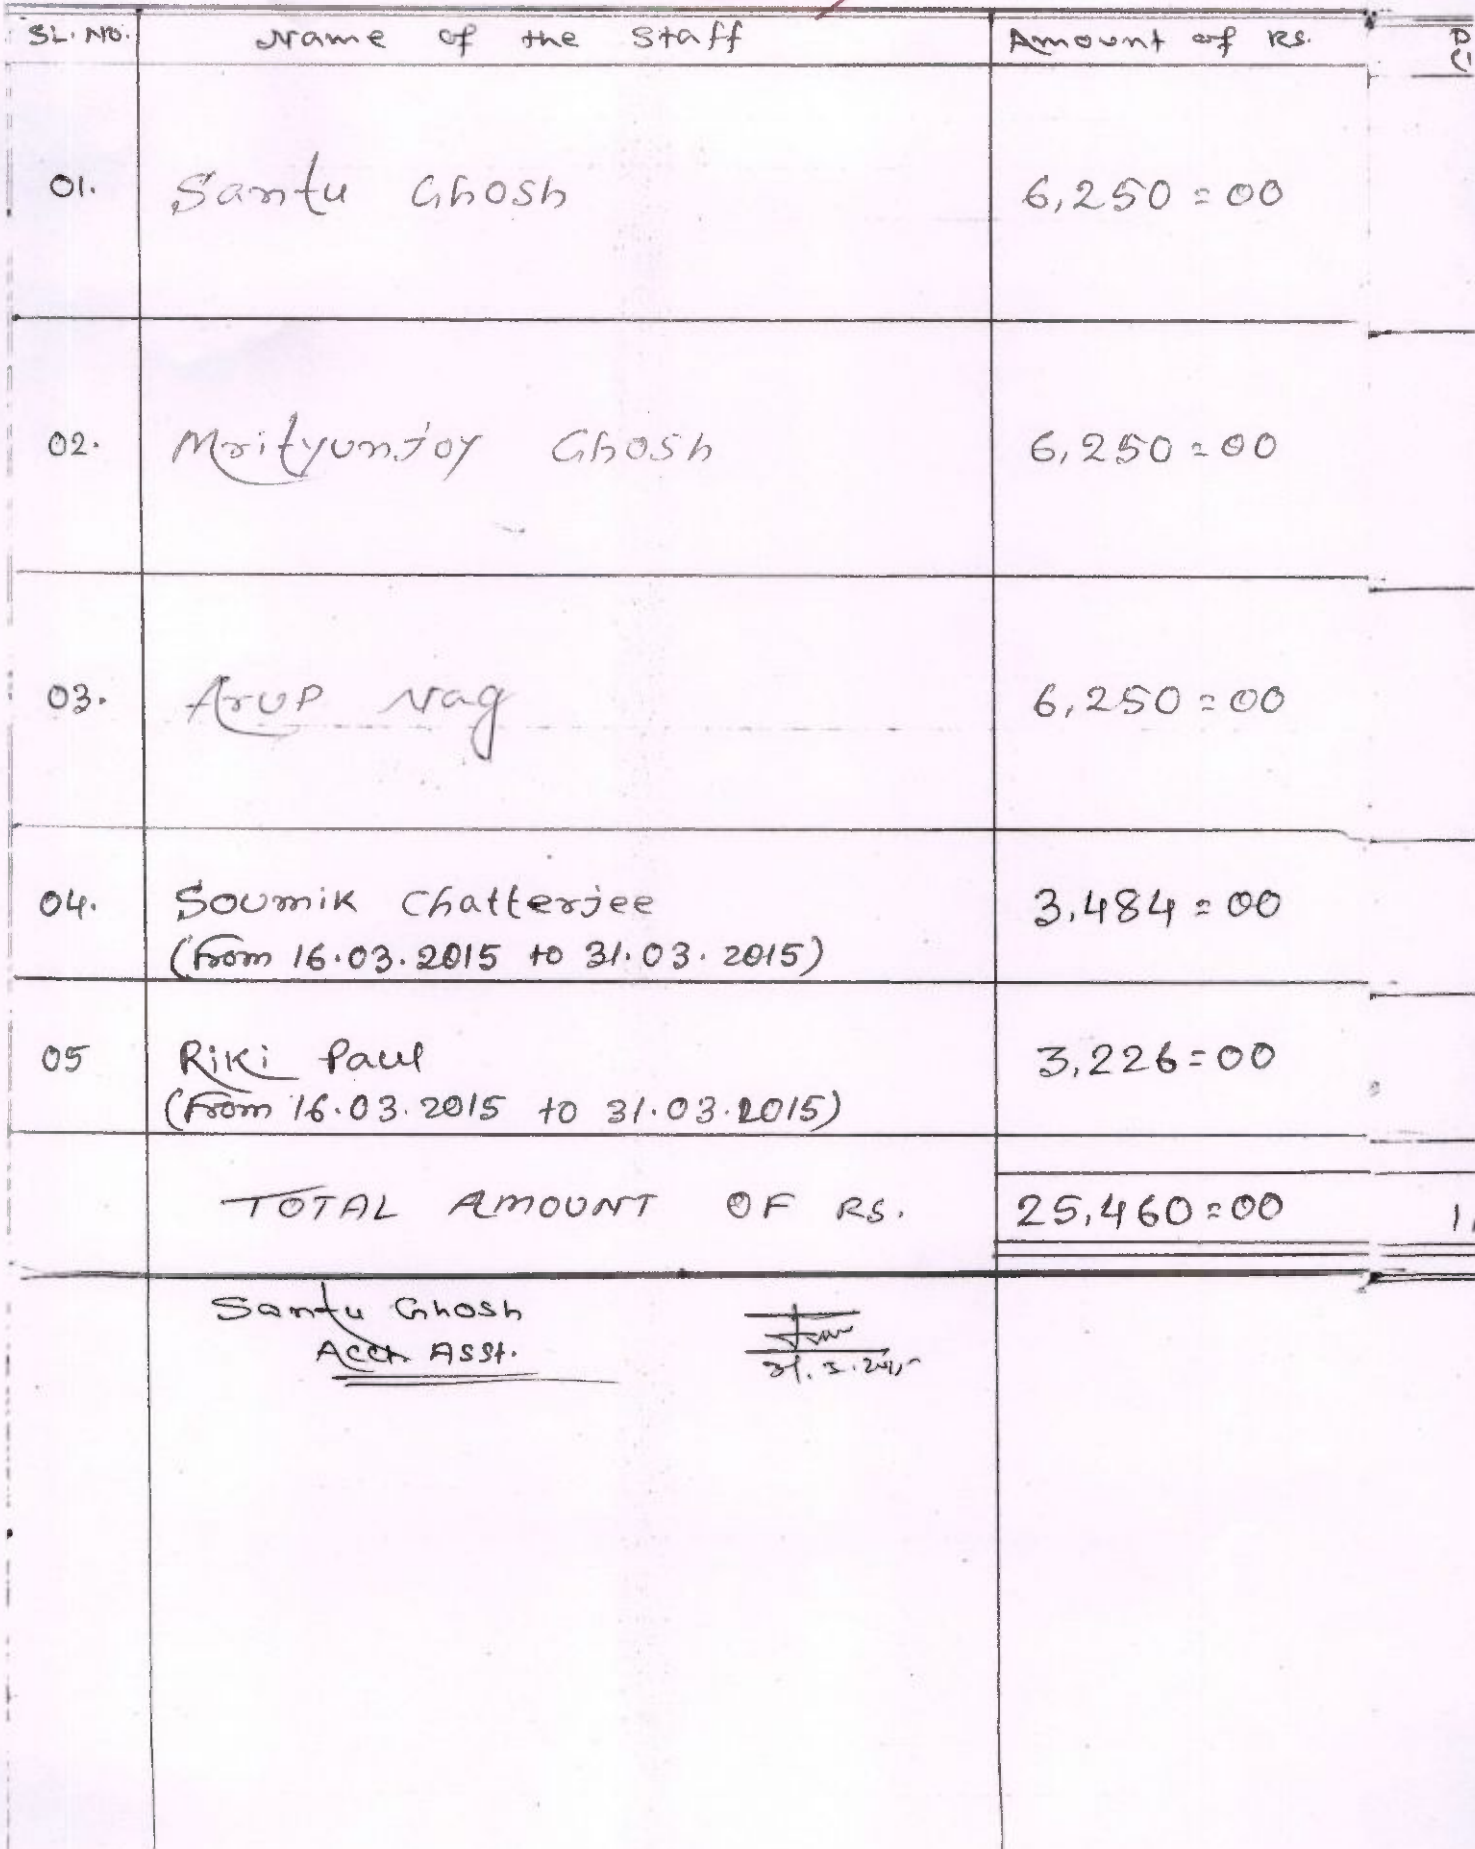 SL. NO. Name of the Staff Amount of RS.
01. Santu Ghosh 6,250=00
02. Mrityunjoy Ghosh 6,250=00
03. Arup Nag 6,250=00
04. Soumik Chatterjee 3,484=00
(From 16.03.2015 to 31.03.2015)
05 Riki Paul 3,226=00
(From 16.03.2015 to 31.03.2015)
TOTAL AMOUNT OF RS. 25,460=00
Santu Ghosh
Acct Asst.
31.3.2015